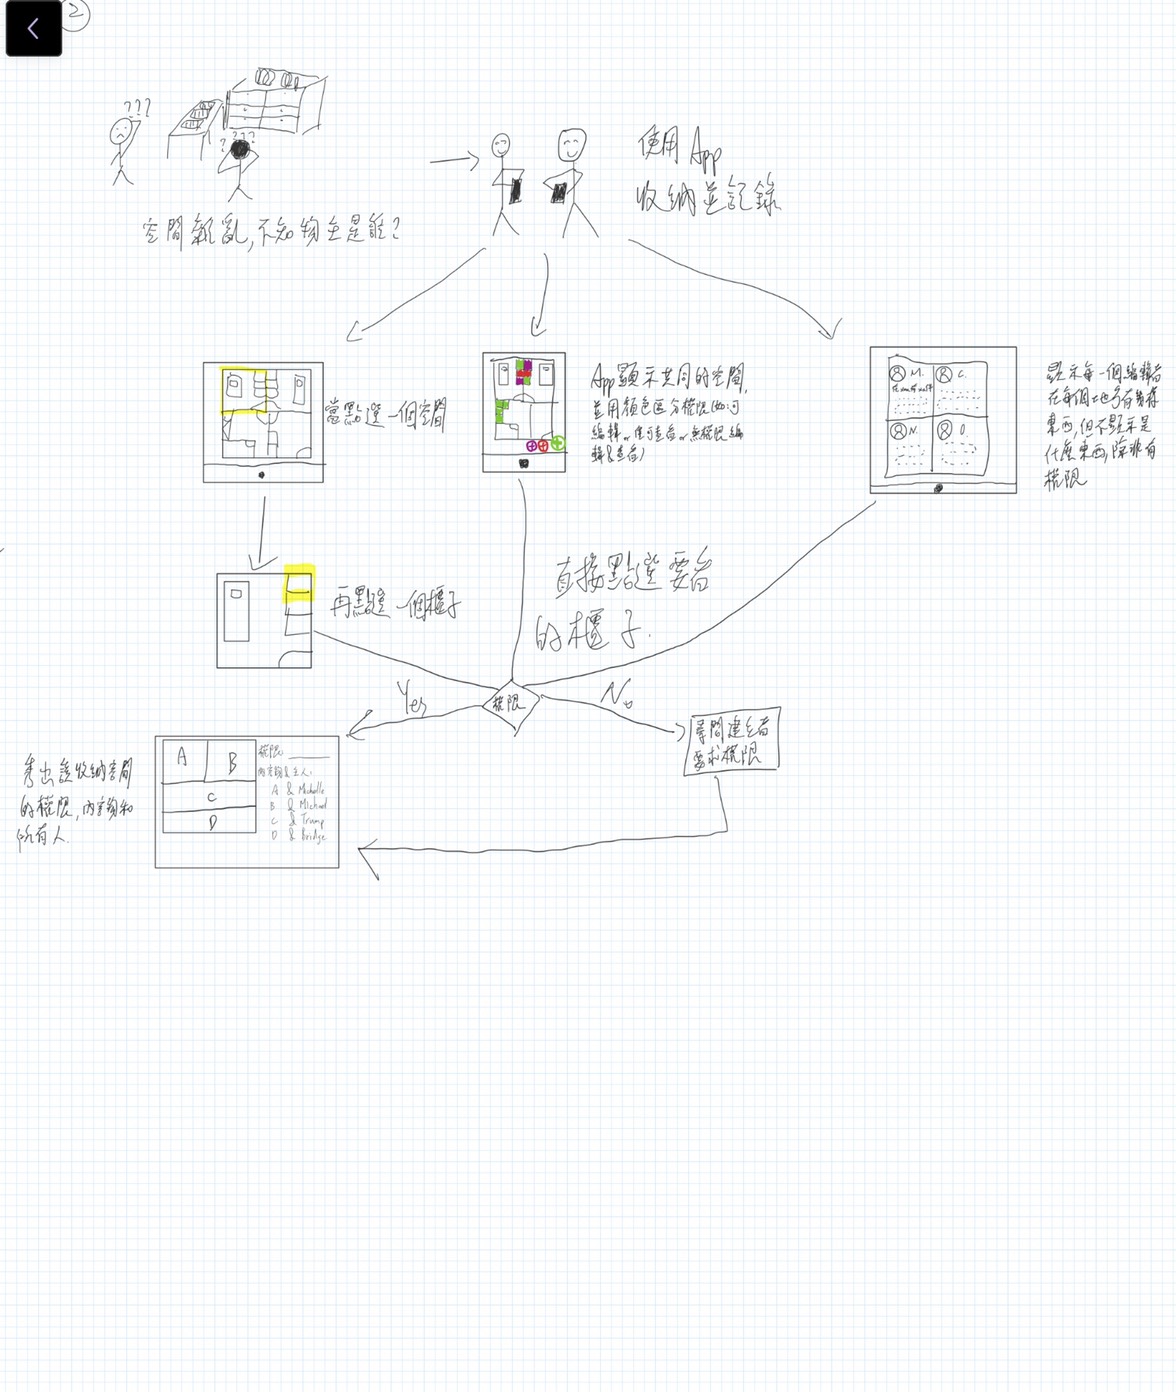 2
???
????
空間雜亂,不知物主是誰?
使用App
收納並記錄
當點選一個空間
App顯示共同的空間,
並用顏色區分權限(如:可
編輯or僅可查看or無權限編
輯&查看)
M.
C.
N.
O.
顯示每一個編輯者
在每個地方有幾樣
東西,但不顯示是
什麼東西,除非有
權限
再點選一個櫃子
直接點選要看
的櫃子.
權限
Yes
No
尋問建立者
要求權限
秀出該收納空間
的權限,內容物和
所有人.
A
B
C
D
權限:
內容物&主人:
A & Michelle
B & Michael
C & Trump
D & Bridge